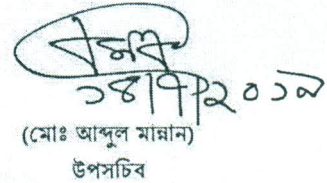 ১৪/৭/২০১৯
(মোঃ আব্দুল মান্নান)
উপসচিব